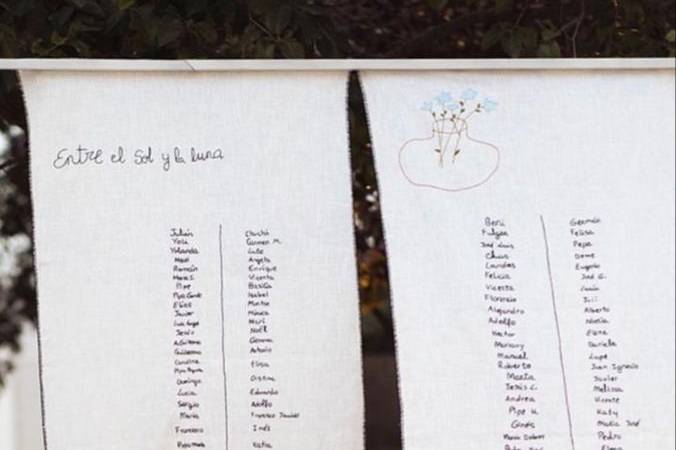 Entre el Sol y la luna
Julián
Yoli
Yolanda
Ramón
María E.
Pipe
Elías
Javier
Luis Angel
Jesús
Guillermo
Carolina
Domingo
Lucía
Sergio
María
Francisco
Conchi
Carmen M.
Lute
Angela
Enrique
Vicenta
Basilia
Isabel
Montse
Mónica
Mari
Noél
Gemma
Antonio
Elisa
Cristina
Eduardo
Adolfo
Francisco Javier
Inés
Katia
Beni
Fulgen
José Luis
Chus
Lourdes
Felicia
Vicenta
Florencio
Alejandro
Adolfo
Hector
Mariany
Manuel
Roberto
María
Jesús C.
Andrea
Pipe H.
Ginés
María Dolores
Germán
Felisa
Pepa
Eugenio
José G.
Juli
Alberto
Noelia
Elena
Daniela
Lupe
Juan Ignacio
Javier
Melissa
Vicente
Katy
María José
Pedro
Elena